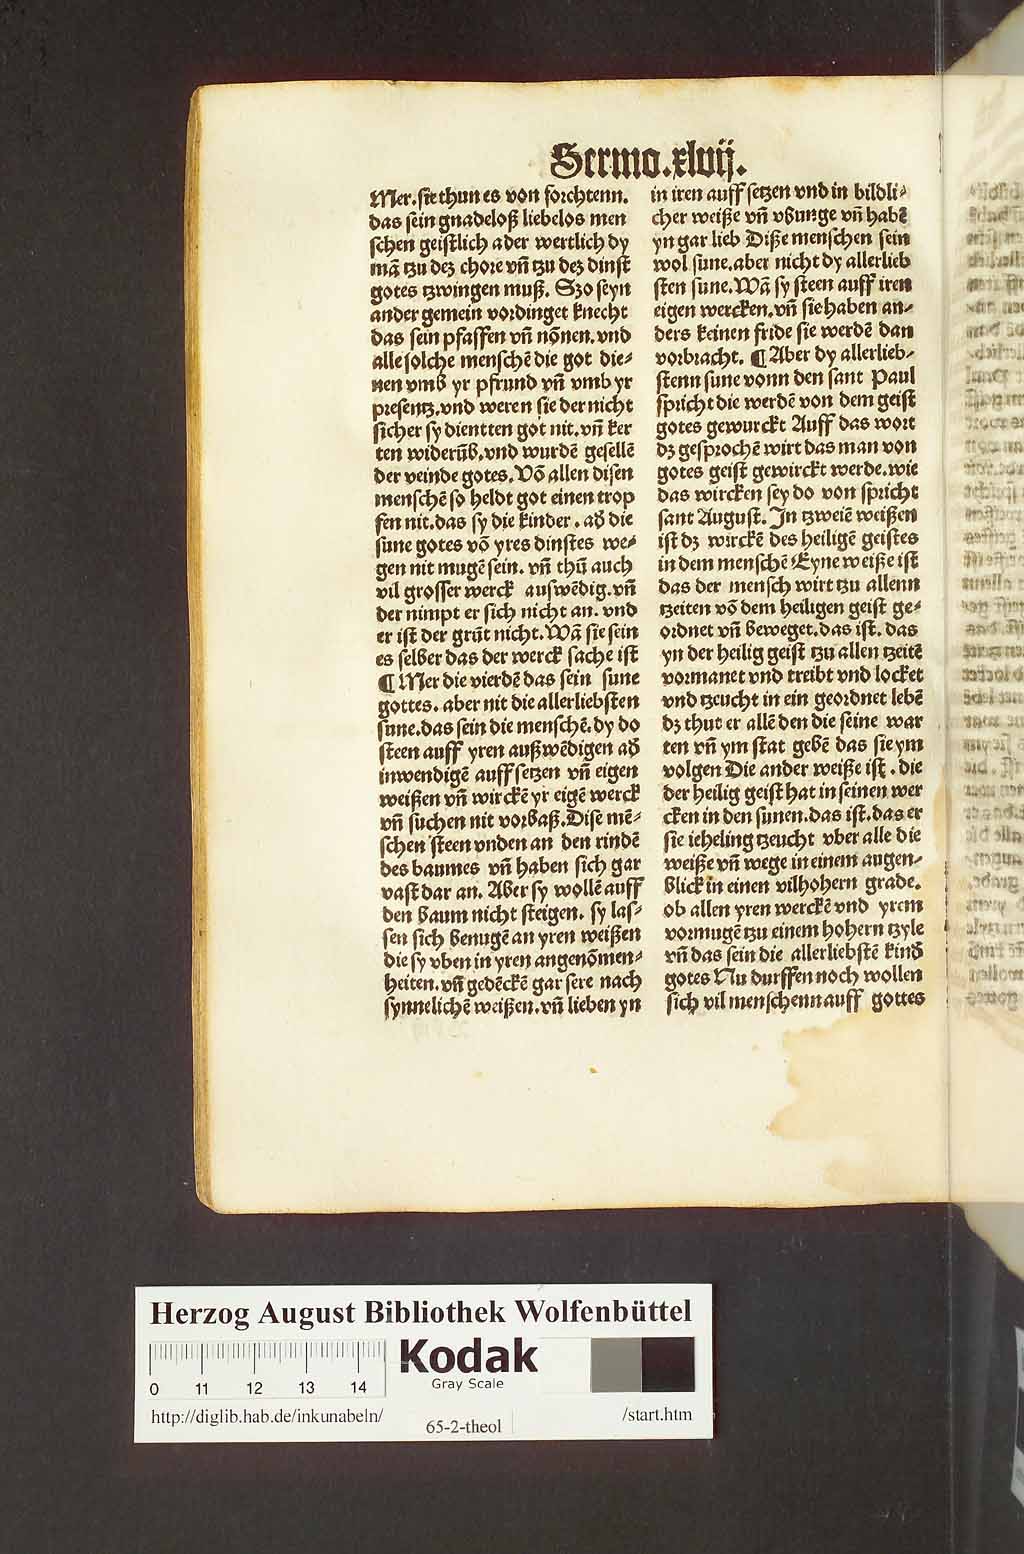 Sermo.xlvij.
Mer. sie thun es von forchtenn.
das sein gnadeloß liebelos men
schen geistlich ader wertlich dy
mā tzu dez chore vn̄ tzu dez dinst
gotes tzwingen muß. Szo seyn
ander gemein vordinget knecht
das sein pfaffen vn̄ nōnen. vnd
alle solche menschē die got die⸗
nen vmb yr pfrund vn̄ vmb yr
presentz. vnd weren sie der nicht
sicher sy dientten got nit. vn̄ ker
ten widerūb. vnd wurdē gesellē
der veinde gotes. Vō allen disen
menschē so heldt got einen trop
fen nit. das sy die kinder. ad̄ die
sune gotes vō yres dinstes we⸗
gen nit mugē sein. vn̄ thū auch
vil grosser werck auswēdig. vn̄
der nimpt er sich nicht an. vnd
er ist der grūt nicht. Wā sie sein
es selber das der werck sache ist
¶ Mer die vierdē das sein sune
gottes. aber nit die allerliebsten
sune. das sein die menschē. dy do
steen auff yren außwēdigen ad̄
inwendigē auff setzen vn̄ eigen
weißen vn̄ wirckē yr eigē werck
vn̄ suchen nit vorbaß. Dise mē⸗
schen steen vnden an den rindē
des baumes vn̄ haben sich gar
vast dar an. Aber sy wollē auff
den baum nicht steigen. sy las⸗
sen sich benugē an yren weißen
die sy vben in yren angenōmen⸗
heiten. vn̄ gedēckē gar sere nach
synnelichē weißen. vn̄ lieben yn
in iren auff setzen vnd in bildli⸗
cher weiße vn̄ vbunge vn̄ habē
yn gar lieb Diße menschen sein
wol sune. aber nicht dy allerlieb
sten sune. Wā sy steen auff iren
eigen wercken. vn̄ sie haben an⸗
ders keinen fride sie werdē dan
vorbracht. ¶ Aber dy allerlieb⸗
stenn sune vonn den sant Paul
spricht die werdē von dem geist
gotes gewurckt Auff das wort
dz gesprochē wirt das man von
gotes geist gewirckt werde. wie
das wircken sey do von spricht
sant August. Jn tzweiē weißen
ist dz wirckē des heiligē geistes
in dem menschē Eyne weiße ist
das der mensch wirt tzu allenn
tzeiten vō dem heiligen geist ge⸗
ordnet vn̄ beweget. das ist. das
yn der heilig geist tzu allen tzeitē
vormanet vnd treibt vnd locket
vnd tzeucht in ein geordnet lebē
dz thut er allē den die seine war
ten vn̄ ym stat gebē das sie ym
volgen Die ander weiße ist. die
der heilig geist hat in seinen wer
cken in den sunen. das ist. das er
sie iheling tzeucht vber alle die
weiße vn̄ wege in einem augen⸗
blick in einen vilhohern grade.
ob allen yren werckē vnd yrem
vormugē tzu einem hohern tzyle
vn̄ das sein die allerliebstē kind̄
gotes Nu durffen noch wollen
sich vil menschenn auff gottes
Herzog August Bibliothek Wolfenbüttel
Kodak
Gray Scale
0 11 12 13 14
http://diglib.hab.de/inkunabeln/ 65-2-theol /start.htm